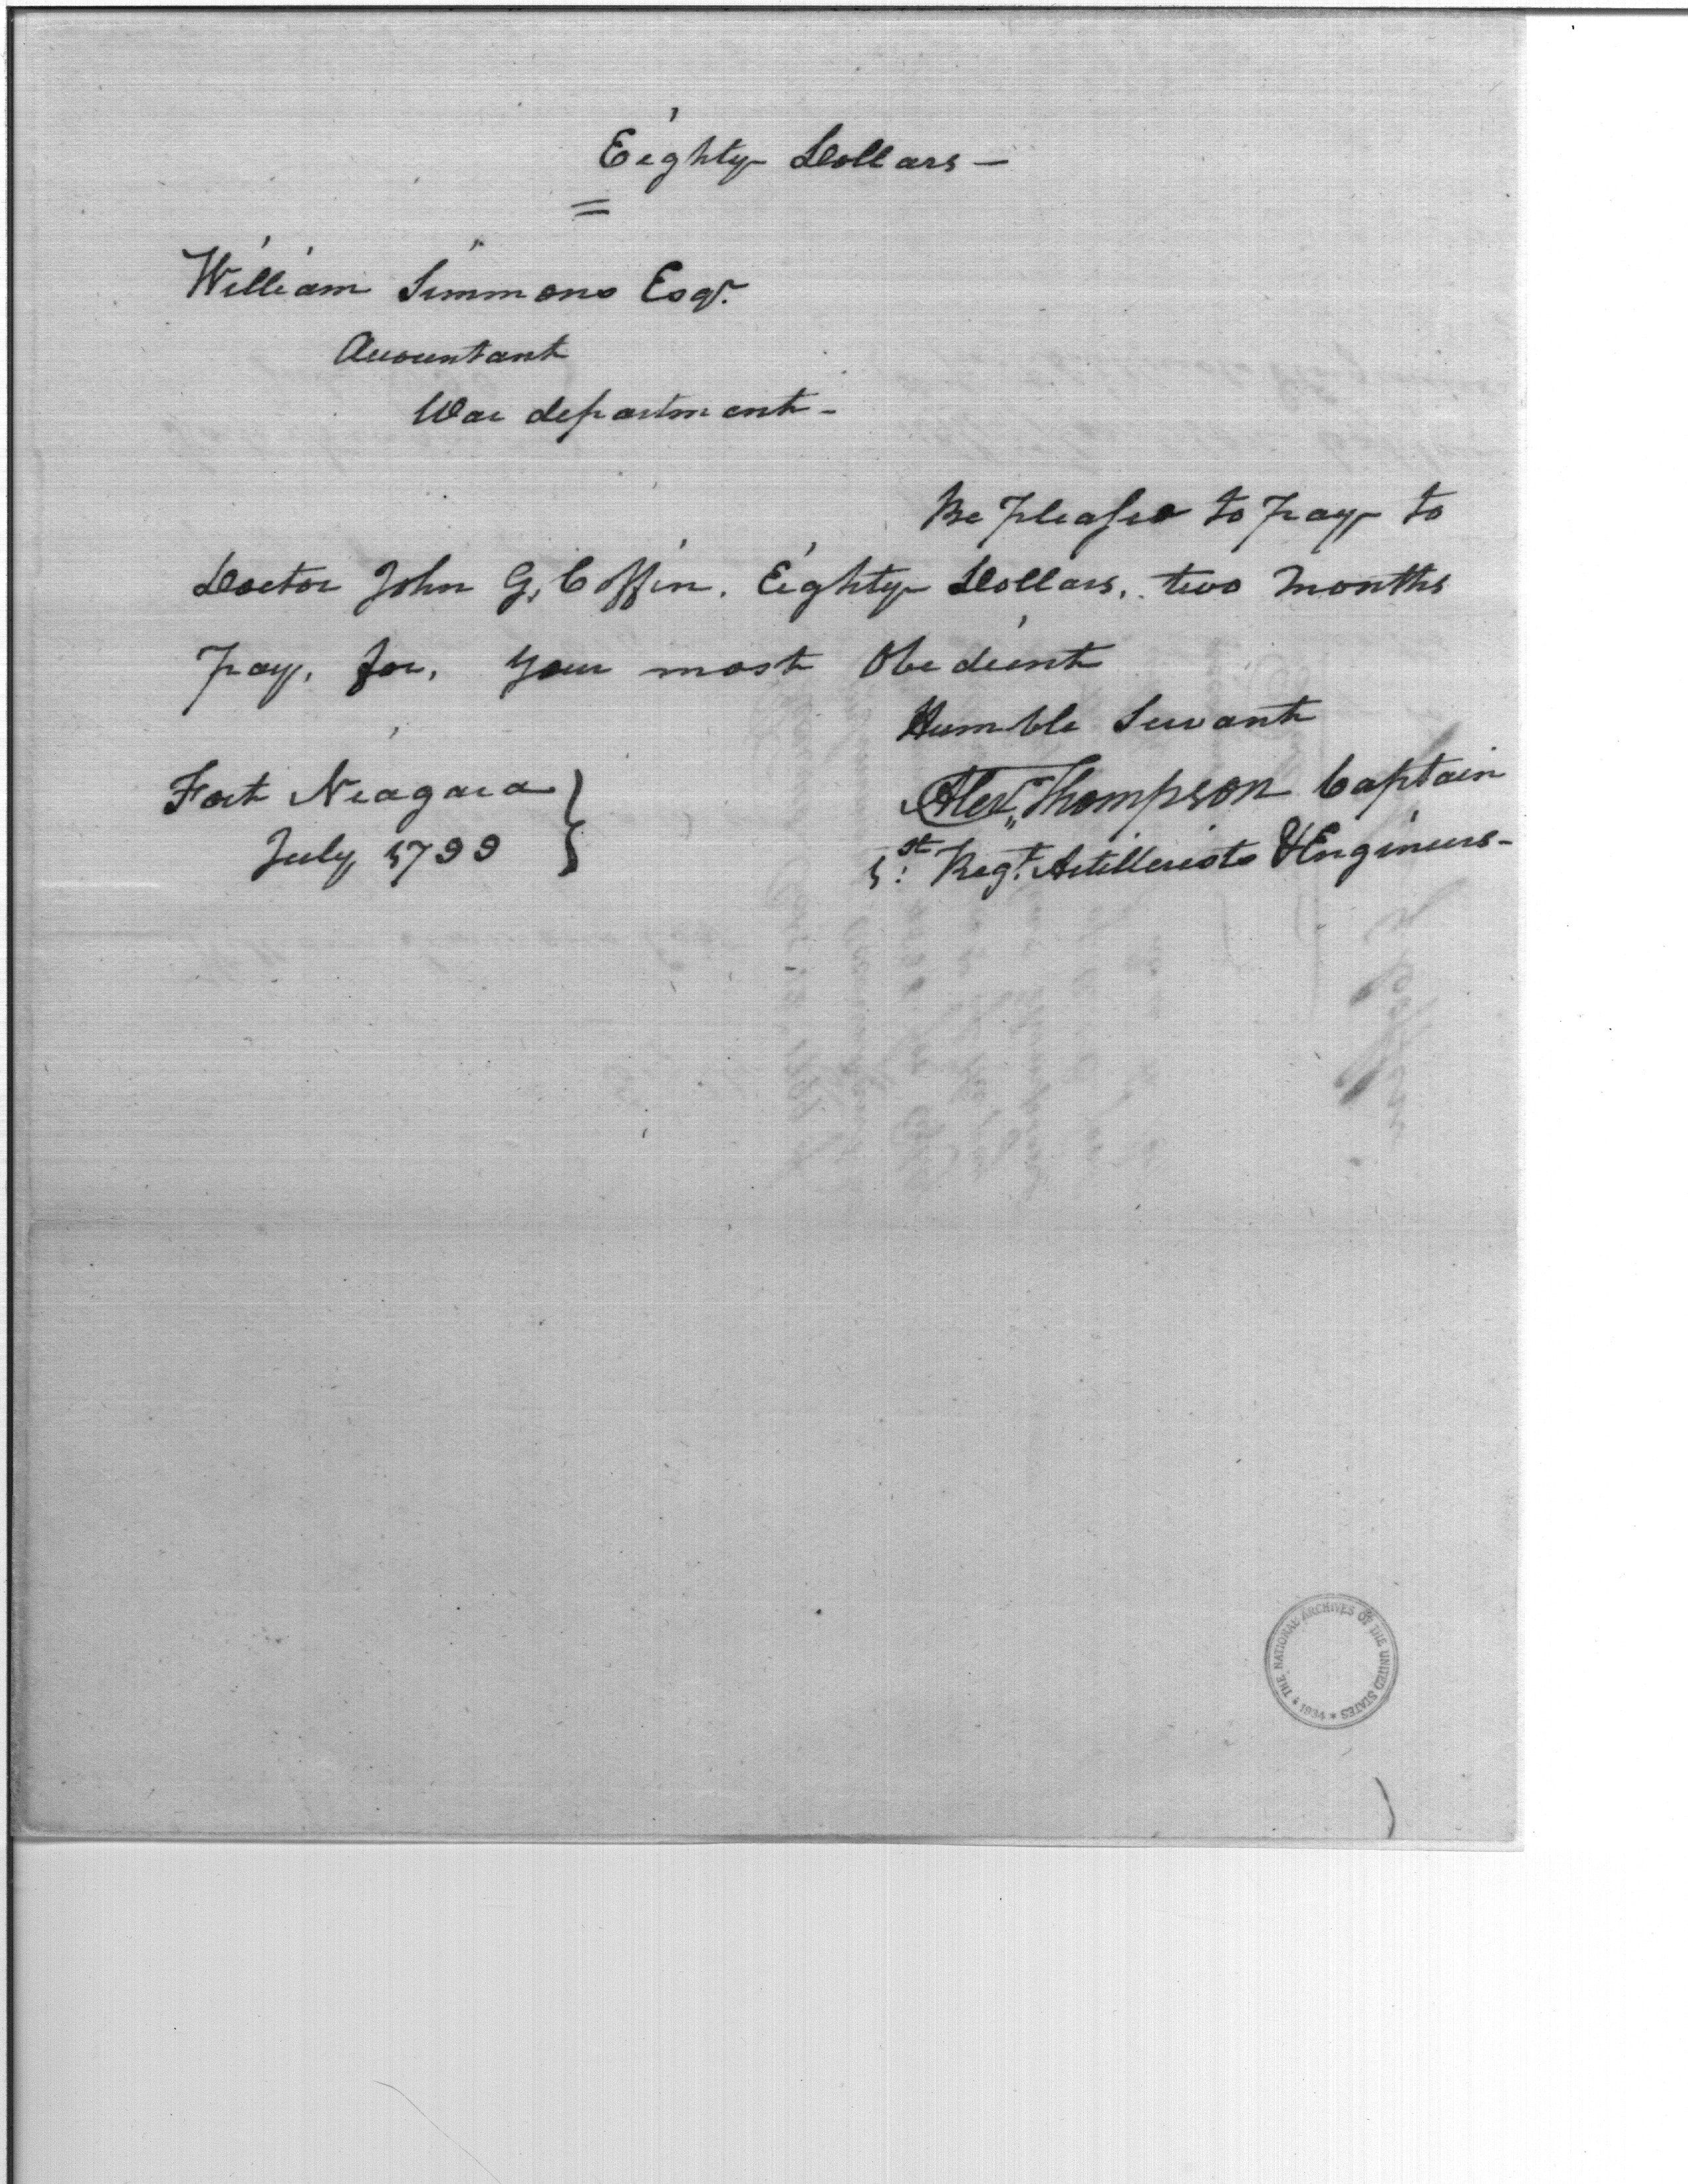 Eighty Dollars —
William Simmons Esqr.
Accountant
War department -
Be pleased to pay to
Doctor John G, Coffin. Eighty Dollars, two months
pay, for, your most Obedient
Humble Servant
Alexr Thompson Captain
1st: Regt. Artillerists & Engineers -
Fort Niagara
July 1799
THE NATIONAL ARCHIVES OF THE UNITED STATES * 1934 *